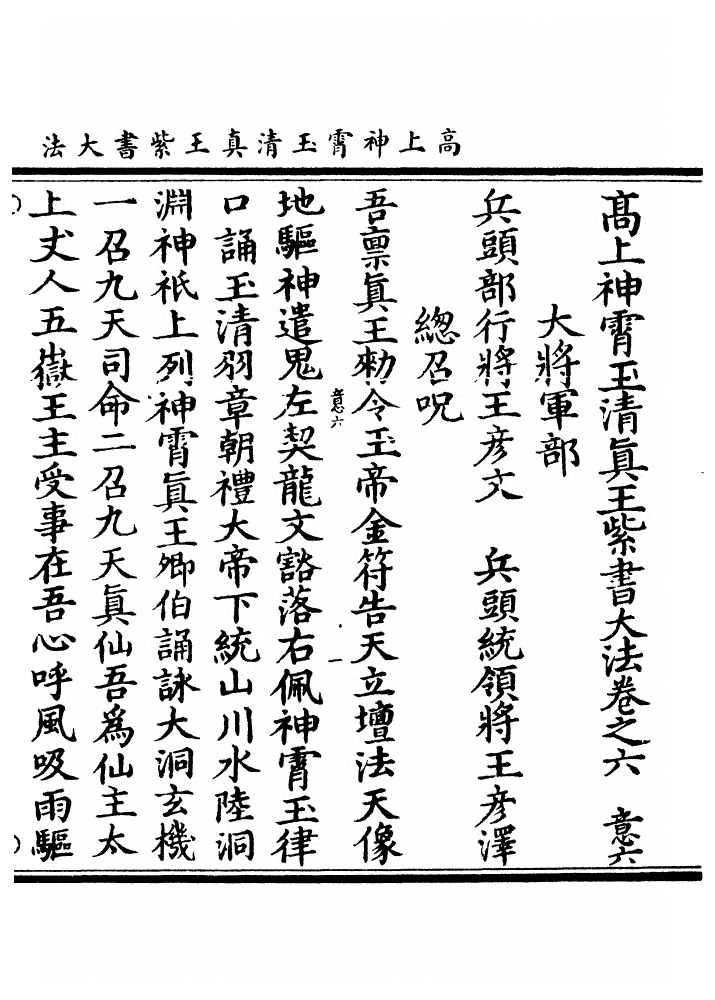 高上神霄玉清真王紫書大法
髙上神霄玉清眞王紫書大法卷之六　意六
大將軍部
兵頭部行將王彦文　兵頭統領將王彦澤
總召呪
吾禀眞王勑令玉帝金符告天立壇法天像
意六
地驅神遣鬼左契龍文豁落右佩神霄玉律
口誦玉清羽章朝禮大帝下統山川水陸洞
淵神祇上列神霄眞王卿伯誦詠大洞玄機
一召九天司命二召九天眞仙吾爲仙主太
上丈人五嶽王主受事在吾心呼風吸雨驅